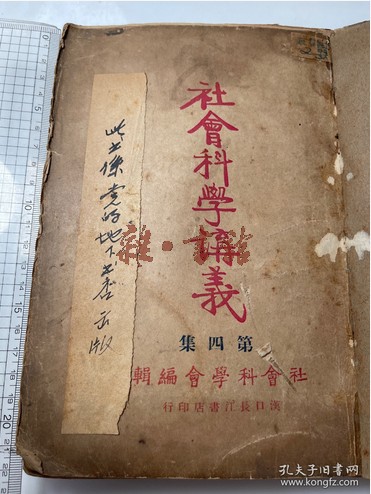 社會科學講義
第四集
社會科學會編輯
漢口長江書店印行
此书係党的地下书店出版
孔夫子旧书网
www.kongfz.com